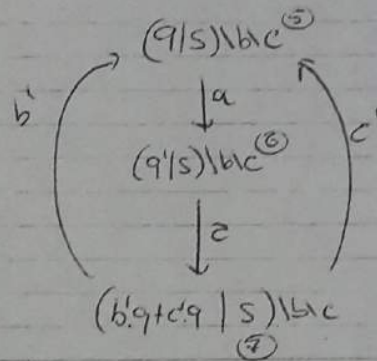 (q|s)\b\c ⑤
b' a c'
(q'|s)\b\c ⑥
z
(b'.q+c'.q | s)\b\c
⑦